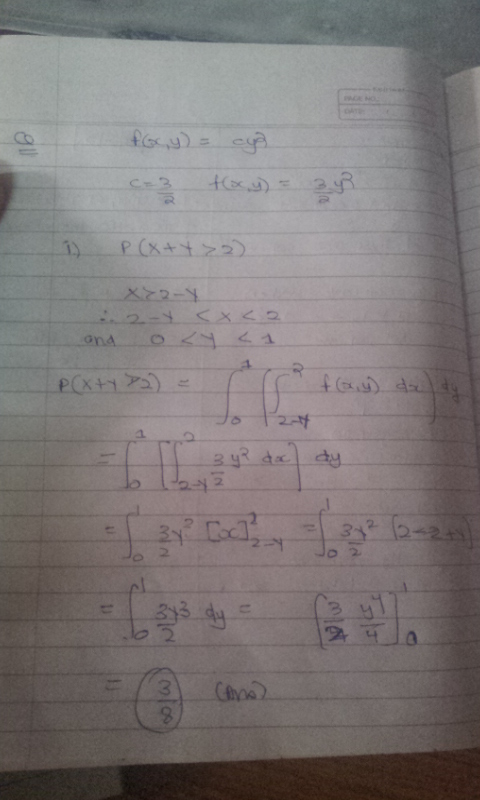 PAGE NO.
DATE:
Q f(x,y) = cy²
c = 3/2 f(x,y) = 3/2 y²
i) P(X+Y>2)
X>2-Y
∴ 2-Y < X < 2
and 0 < Y < 1
P(X+Y>2) = ∫₀¹ [∫₂₋Y² f(x,y) dx] dy
= ∫₀¹ [∫₂₋Y² 3/2 y² dx] dy
= ∫₀¹ 3y²/2 [x]²₂₋Y = ∫₀¹ 3y²/2 [2-2+Y]
= ∫₀¹ 3y³/2 dy = [3/2 y⁴/4]₀¹
= 3/8 (Ans)